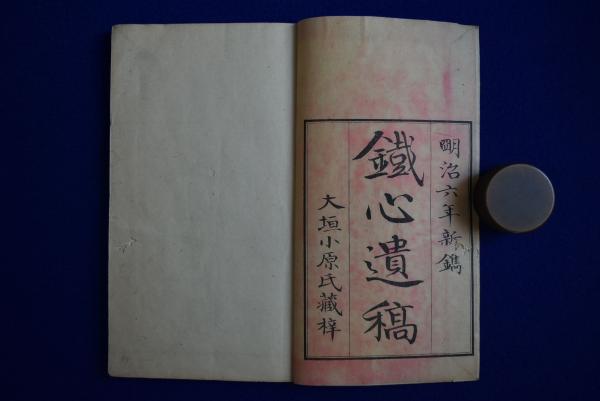 明治六年新鐫
鐵心遺稿
大垣小原氏藏梓